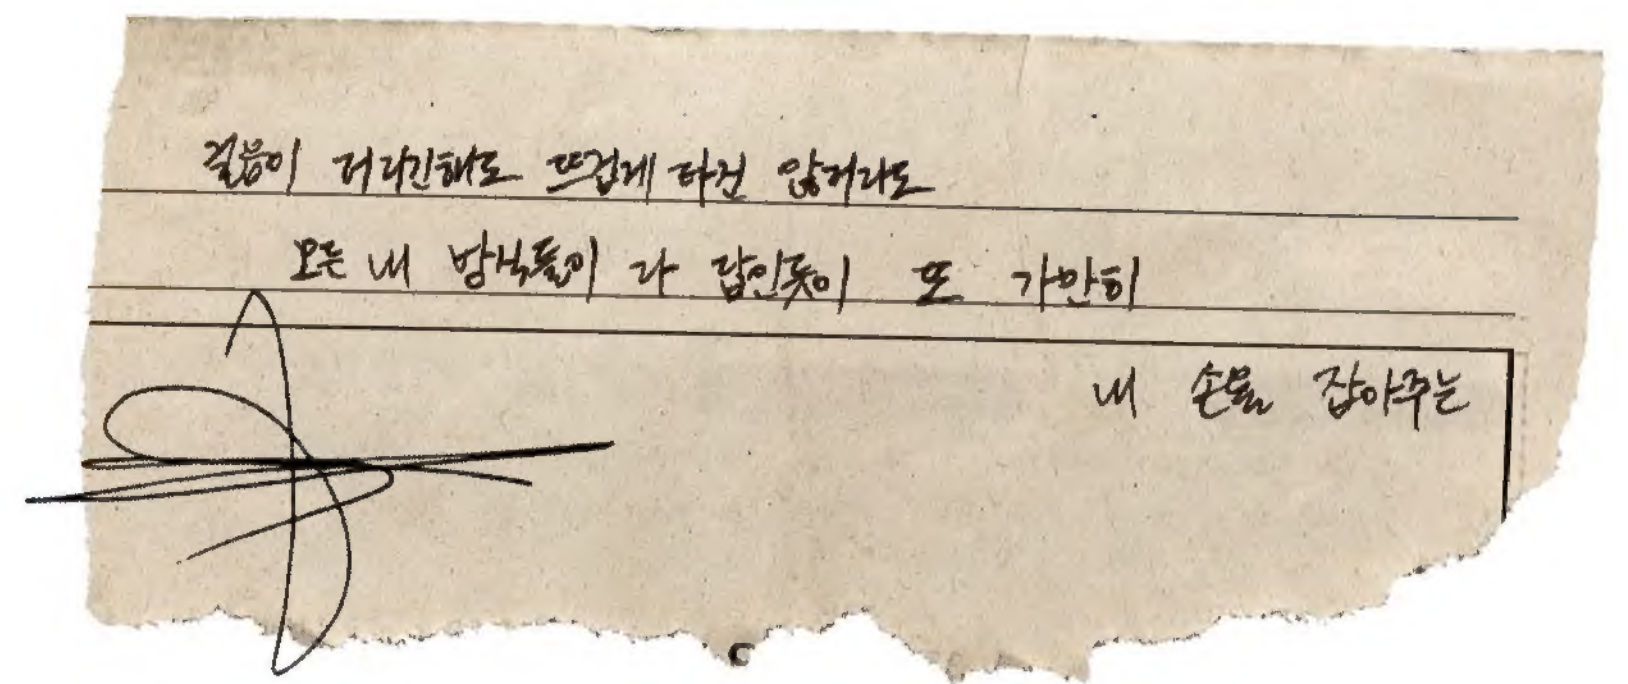 걸음이 더디긴해도 뜨겁게 타진 않거라도
모든 내 방식들이 다 답인듯이 또 가만히
내 손을 잡아주는